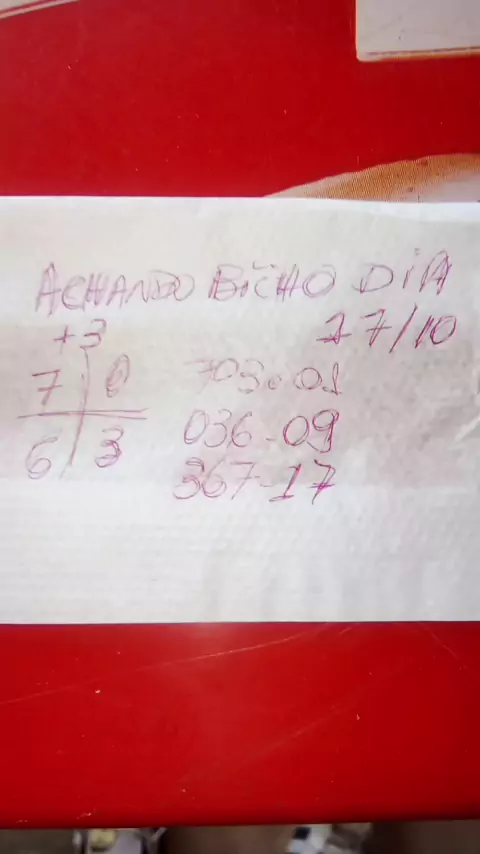 ACHANDO BICHO DIA
+3 17/10
7 0 703.01
6 3 036-09
367-17